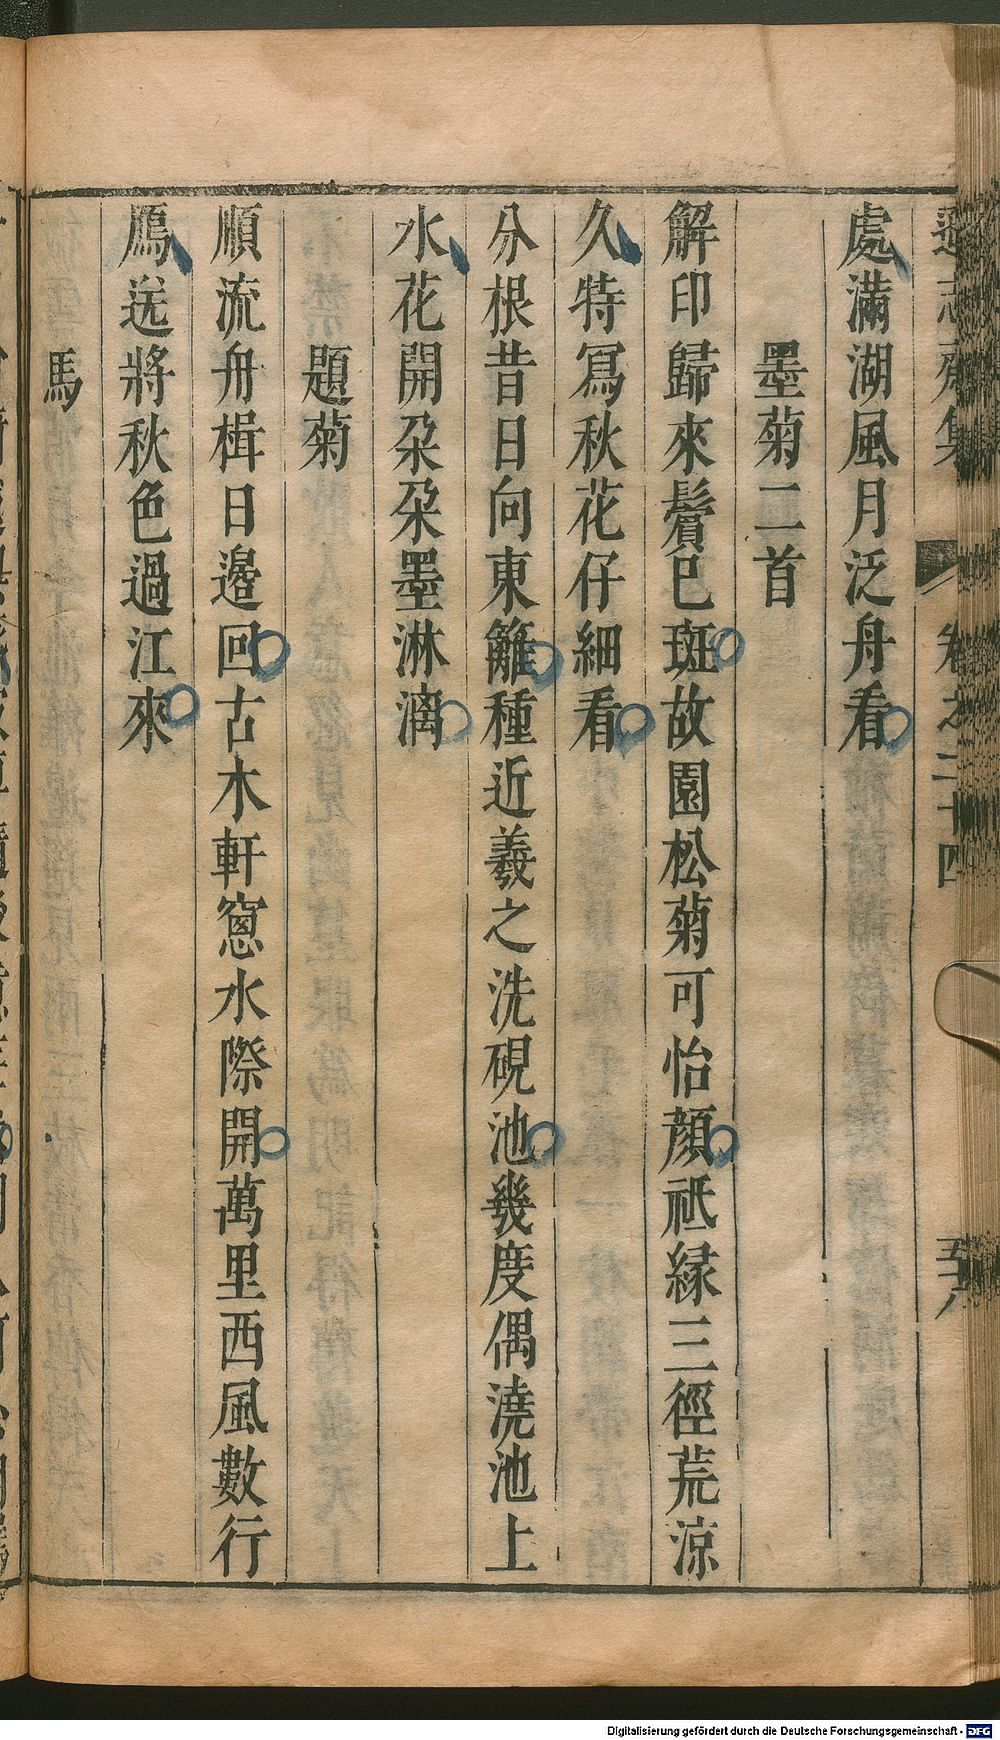 遜志齋集 卷之二十四 五十八
處滿湖風月泛舟看
墨菊二首
解印歸來鬢已斑故園松菊可怡顔祗緑三徑荒涼
久特冩秋花仔細看
分根昔日向東籬種近羲之洗硯池幾度偶澆池上
水花開朶朶墨淋漓
題菊
順流舟楫日邊回古木軒窻水際開萬里西風數行
鴈送將秋色過江來
馬
Digitalisierung gefördert durch die Deutsche Forschungsgemeinschaft - DFG